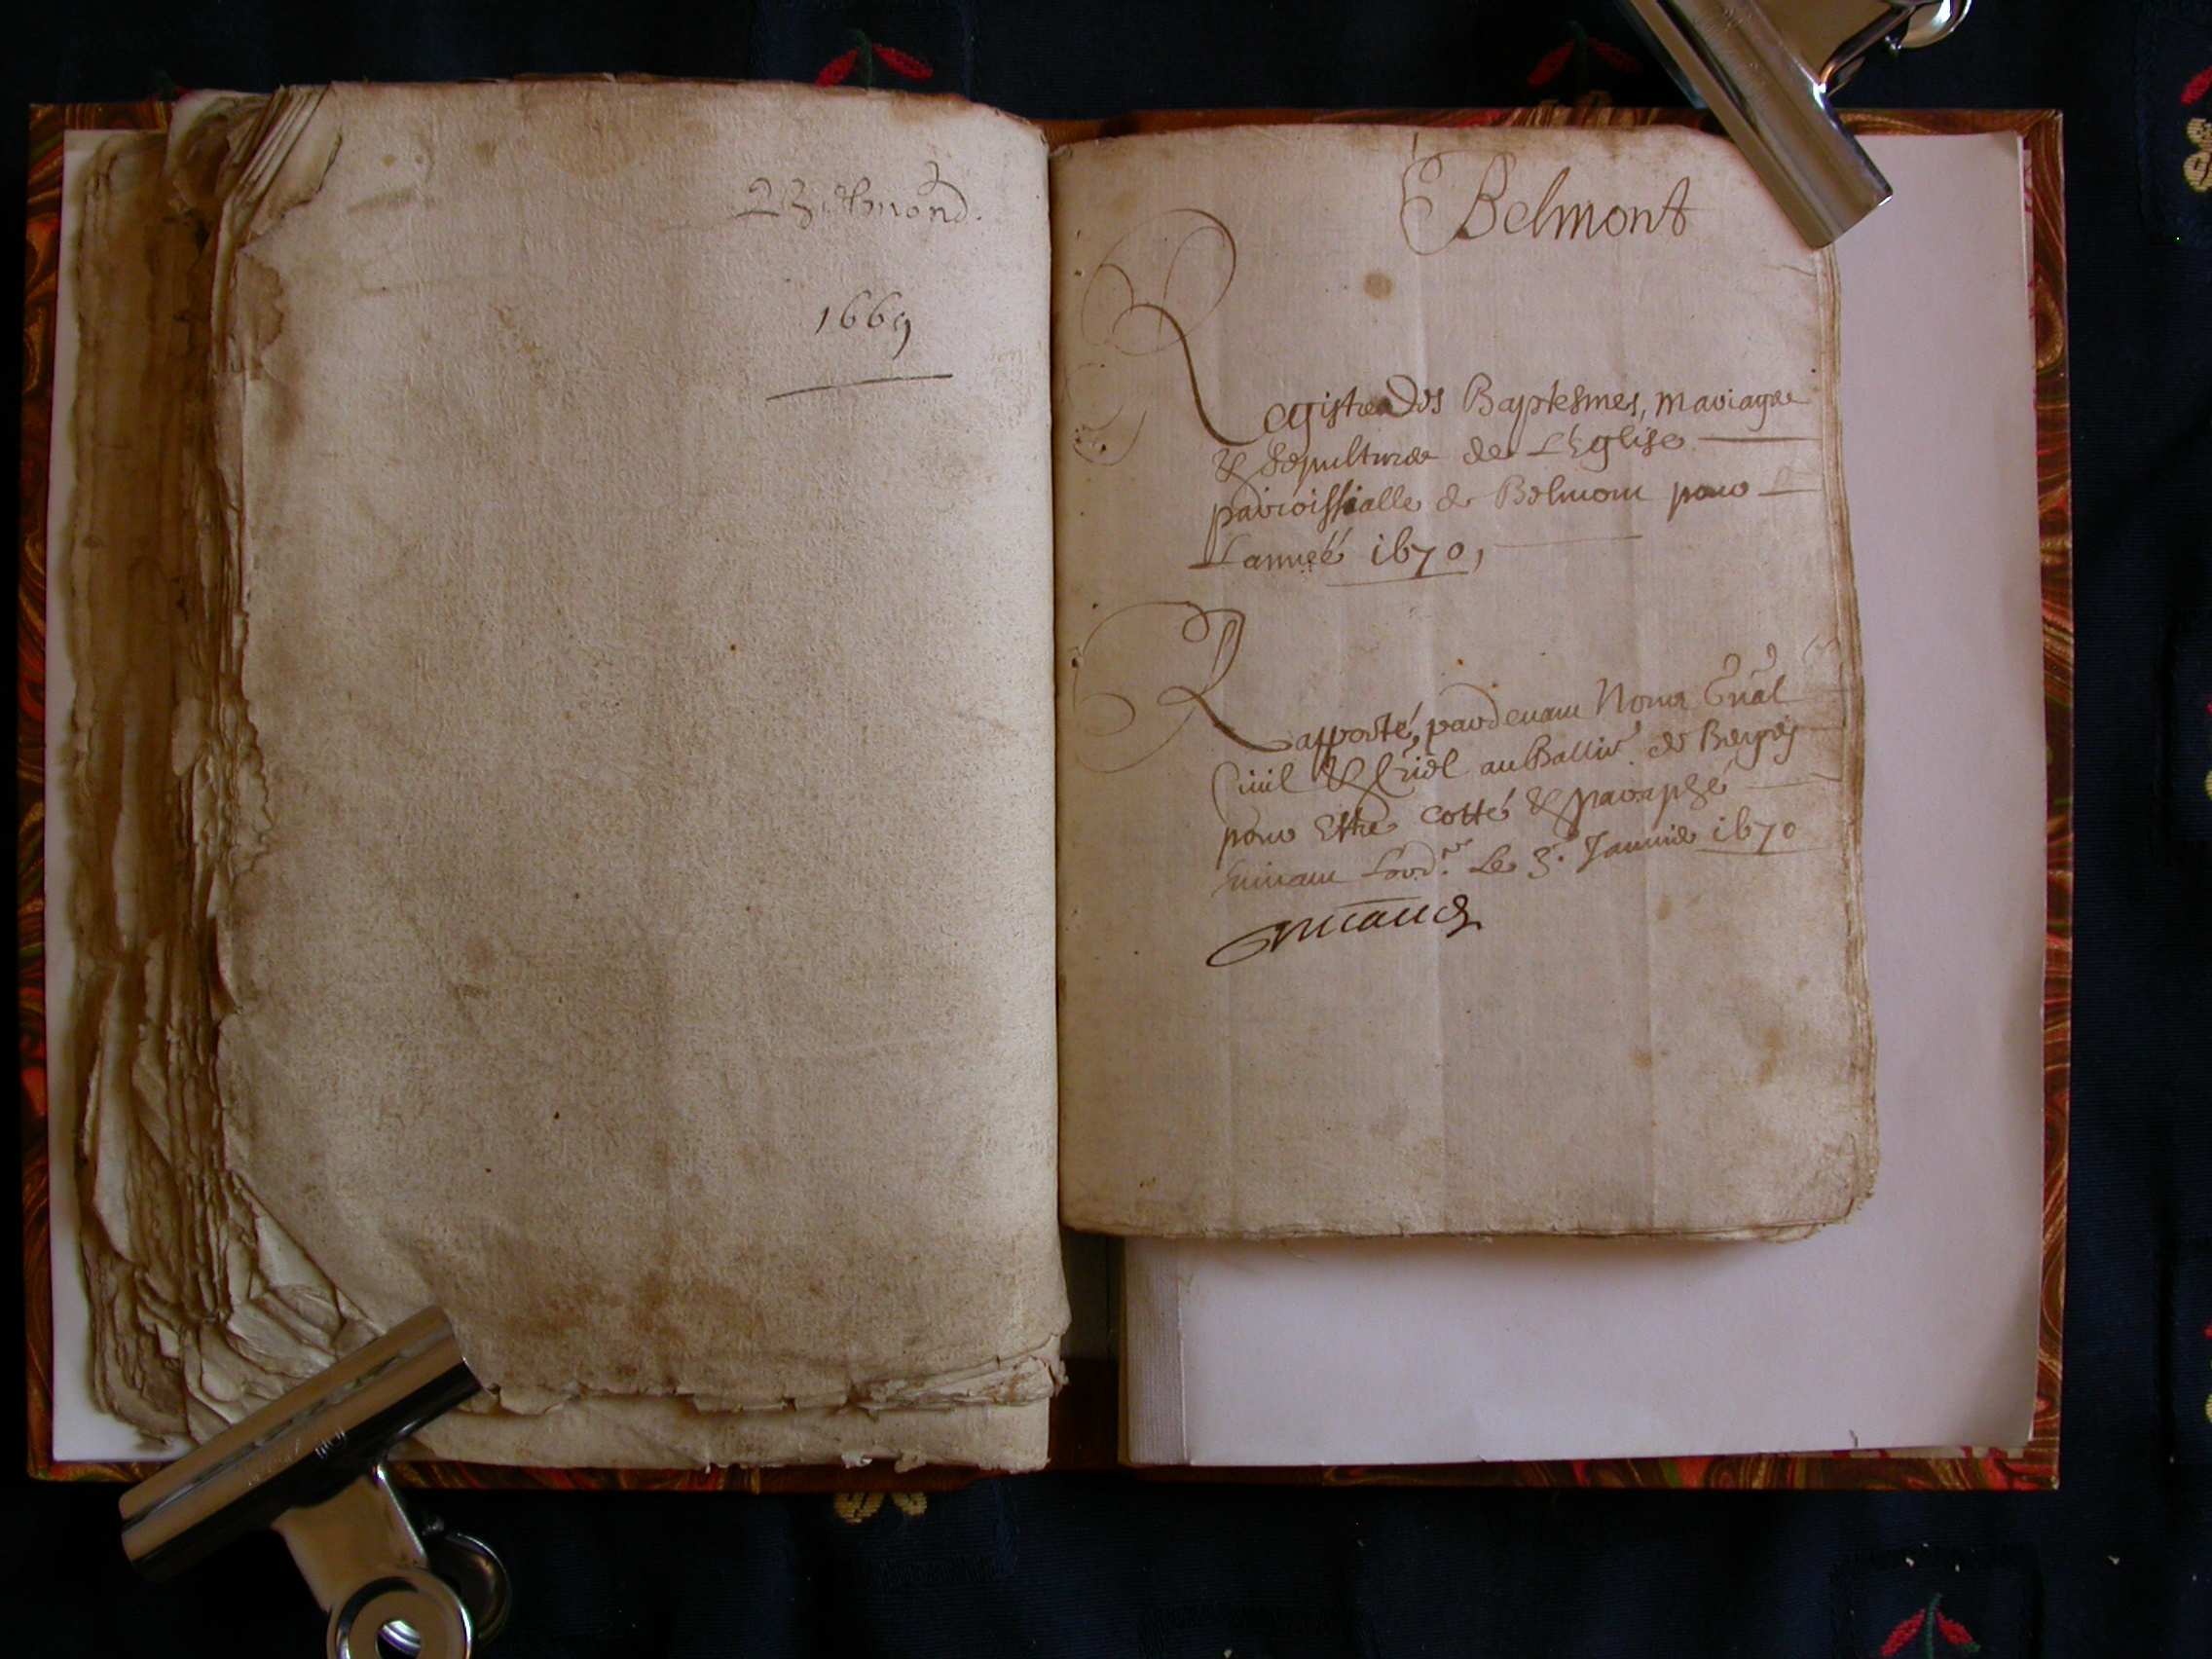 1669
Belmont
Registre Des Baptesmes, mariages
& sepultures de L'Eglise
parroissialle de Belmont pour
L'année 1670,
Rapporté, pardevant Nous
Ciuil & Criel au Balli.
pour Estre cotté & paraphé
suiuant Lord.ce Le 3.e Januier 1670